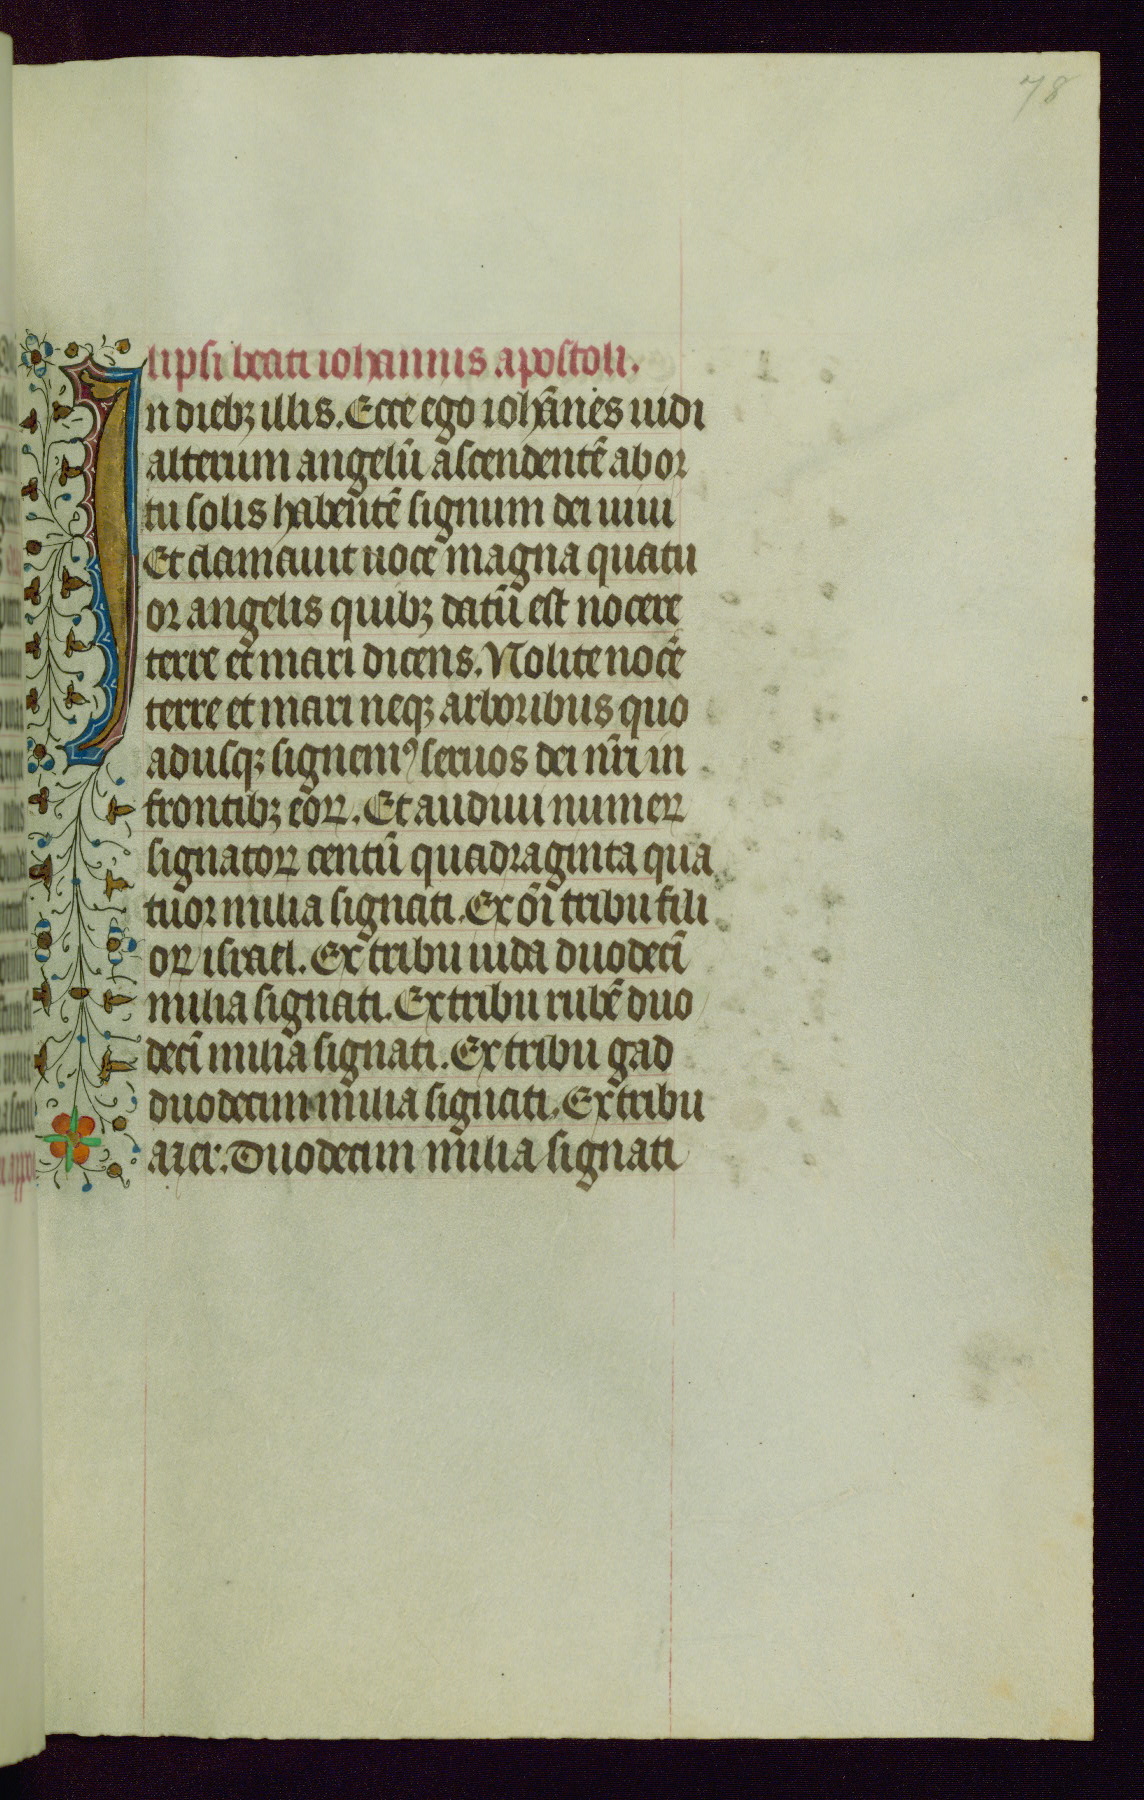 78
lipsi beati iohannis apostoli.
In diebꝫ illis. Ecce ego ioh̄anes uidi
alterum angelū ascendentē ab or
tu solis habentē signum dei uiui
Et clamauit uoce magna quatu
or angelis quibꝫ datū est nocere
terre et mari dicens. Nolite nocē
terre et mari neqꝫ arboribus quo
adusqꝫ signemꝰ seruos dei nr̄i in
frontibꝫ eoꝝ. Et audiui numeꝝ
signatoꝝ centū quadraginta qua
tuor milia signati. Ex oī tribu fili
oꝝ israel. Ex tribu iuda duodecī
milia signati. Ex tribu rubē duo
decī milia signati. Ex tribu gad
duodecim milia signati. Ex tribu
azer. Duodecim milia signati